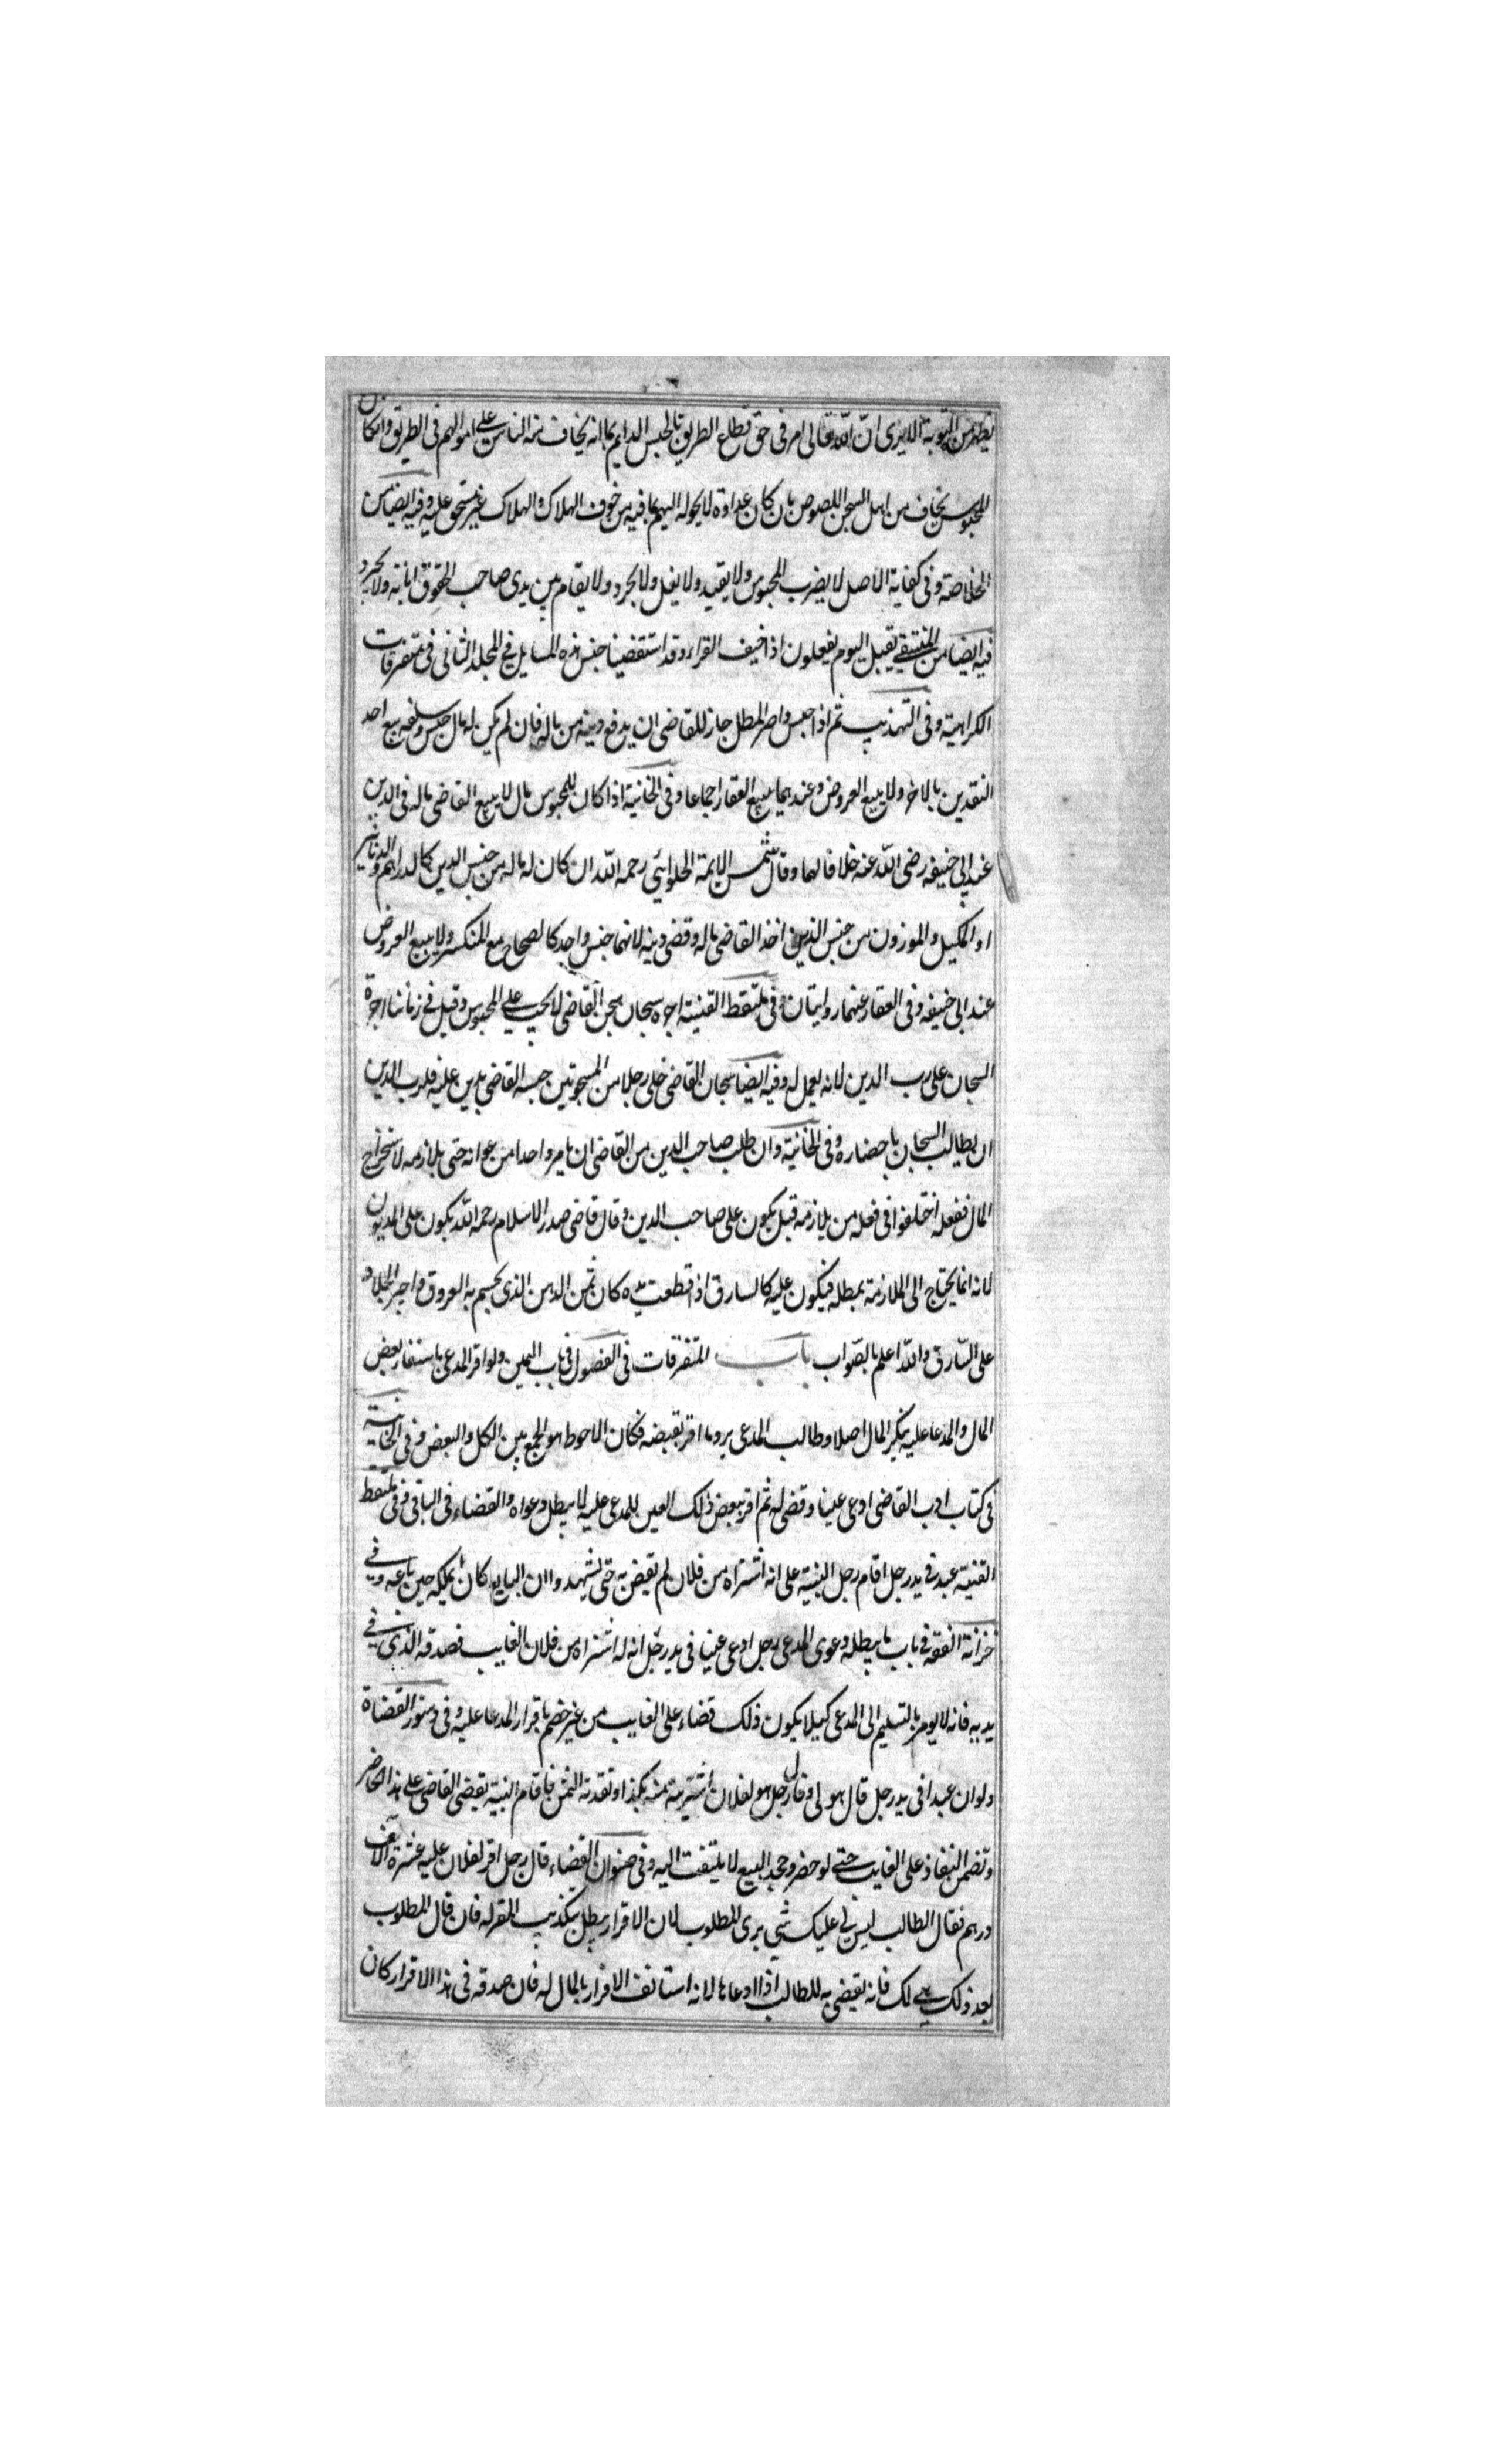 يظهر من التوبة الا يرى ان الله تعالى امر فى حق قطاع الطريق بالحبس الدايم لما انه يخاف منه الناس على اموالهم فى الطريق وان كان
المحبوس يخاف من اهل السجن اللصوص بان كان عداوة لا يحوله اليهم لما فيه من خوف الهلاك والهلاك غير مستحق عليه وفيه ايضا من
الخلاصة وفى كفاية الاصل لا يضرب المحبوس ولا يقيد ولا يغل ولا يجرد ولا يقام بين يدى صاحب الحقوق اهانة ولا يجرد
فيه ايضا من المنتقى يقبل اليوم يفعلون اذا خيف الفرار وقد استقضينا جنس هذه المسايل فى المجلد الثانى فى متفرقات
الكراهية وفى التهذيب ثم اذا حبس واصر المطل جاز للقاضى ان يدفع دينه من ماله فان لم يكن له مال جنس وسلعه يبيع احد
النقدين بالاخر ولا يبيع العروض وعندهما يبيع العقار اجماعا وفى الخانية اذا كان للمحبوس مال لا يبيع القاضى ماله فى الدين
عند ابى حنيفه رضى الله عنه خلافا لهما وقال شمس الايمة الحلوائي رحمه الله ان كان له ماله من جنس الدين كالدراهم والدنانير
او المكيل والموزون من جنس الدين اخذ القاضى ماله وقضى دينه لانهما جنس واحد كالصحاح مع المنكسر ولا يبيع العروض
عند ابى حنيفه وفى العقار عنهما روايتان وفى ملتقط القنية اجره سجان سجن القاضى لا يجب على المحبوس وقيل فى زماننا اجرة
السجان على رب الدين لانه يعمل له وفيه ايضا سجان القاضى خلى رجلا من المسجونين حبسه القاضى بدين عليه فلرب الدين
ان يطالب السجان باحضاره وفى الخانية وان طلب صاحب الدين من القاضى ان يامر واحدا من عوانه حتى يلازمه لاستخراج
المال ففعله اختلفوا فى فعله من يلازمه قيل يكون على صاحب الدين وقال قاضى صدر الاسلام رحمه الله يكون على المديون
لانه انما يحتاج الى الملازمة بمطله فيكون عليه كالسارق اذا قطعت يده كان ثمن الدهن الذى يحسم به العروق واجر الجلاد
على السارق والله اعلم بالصواب باب المتفرقات فى الفصول فى باب اليمين ولو اقر المدعى باستيفاء بعض
المال والمدعا عليه ينكر المال اصلا وطالب المدعى برد ما اقر بقبضه فكان الاحوط هو الجمع بين الكل والبعض وفى الخانية
فى كتاب ادب القاضى ادعى عينا وقضى له ثم اقر ببعض ذلك العين للمدعى عليه لا يبطل دعواه والقضاء فى الباقى وفى ملتقط
القنية عبد فى يد رجل اقام رجل البينة على انه اشتراه من فلان لم يقض به حتى يشهدوا ان البايع كان يملكه حين باعه وفى
خزانة الفقه فى باب ما يبطله دعوى المدعى رجل ادعى عينا فى يد رجل انه له اشتراه من فلان الغايب فصدقه الذى فى
يديه فانه لا يومر بالتسليم الى المدعى كيلا يكون ذلك قضاء على الغايب من غير خصم باقرار المدعا عليه وفى دستور القضاة
ولو ان عبدا فى يد رجل قال هو لى وقال رجل هو لفلان اشتريته منه بكذا ونقدته الثمن فاقام البينة يقضى القاضى على هذا الحاضر
وتضمن النفاذ على الغايب حتى لو حضر وجحد البيع لا يلتفت اليه وفى صنوان القضاء قال رجل اقر لفلان عليه عشرة الاف
درهم فقال الطالب ليس لى عليك شى برى المطلوب لان الاقرار يبطل بتكذيب المقر له فان قال المطلوب
بعد ذلك هى لك فانه يقضى به للطالب اذا ادعاها لانه استانف الاقرار بالمال له فان صدقه فى هذا الاقرار كان